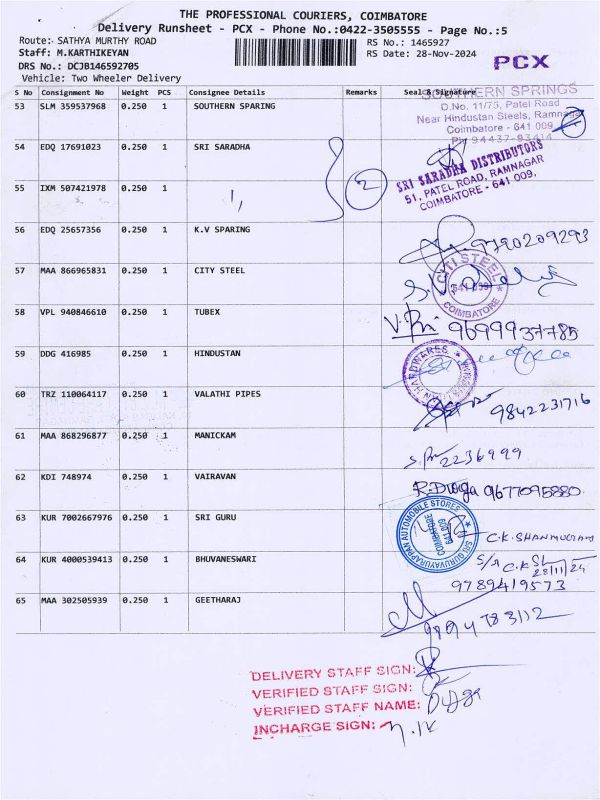 THE PROFESSIONAL COURIERS, COIMBATORE
Delivery Runsheet - PCX - Phone No.:0422-3505555 - Page No.:5
Route: SATHYA MURTHY ROAD RS No.: 1465927
Staff: M.KARTHIKEYAN RS Date: 28-Nov-2024
PCX
DRS No.: DCJB146592705
Vehicle: Two Wheeler Delivery
S No Consignment No Weight PCS Consignee Details Remarks Seal & Signature
53 SLM 359537968 0.250 1 SOUTHERN SPARING
SOUTHERN SPRINGS
D.No. 11/75, Patel Road
Near Hindustan Steels, Ramnagar
Coimbatore - 641 009
Ph 94437-83414
54 EDQ 17691023 0.250 1 SRI SARADHA
SRI SARADHA DISTRIBUTORS
51, PATEL ROAD, RAMNAGAR
COIMBATORE - 641 009.
55 IXM 507421978 0.250 1
2
56 EDQ 25657356 0.250 1 K.V SPARING
9790209293
57 MAA 866965831 0.250 1 CITY STEEL
CITI STEEL
641 009
COIMBATORE
58 VPL 940846610 0.250 1 TUBEX
9699937785
59 DDG 416985 0.250 1 HINDUSTAN
HARDWARES
60 TRZ 110064117 0.250 1 VALATHI PIPES
9842231716
61 MAA 868296877 0.250 1 MANICKAM
2236999
62 KDI 748974 0.250 1 VAIRAVAN
R.Durga 9677095880
63 KUR 7002667976 0.250 1 SRI GURU
SRI GURUVAYURAPPAN AUTOMOBILE STORES
COIMBATORE
641 009
C.K. SHANMUGAM
64 KUR 4000539413 0.250 1 BHUVANESWARI
S/A C.K.
28/11/24
9789419573
65 MAA 302505939 0.250 1 GEETHARAJ
9894783112
DELIVERY STAFF SIGN:
VERIFIED STAFF SIGN:
VERIFIED STAFF NAME: Durga
INCHARGE SIGN: